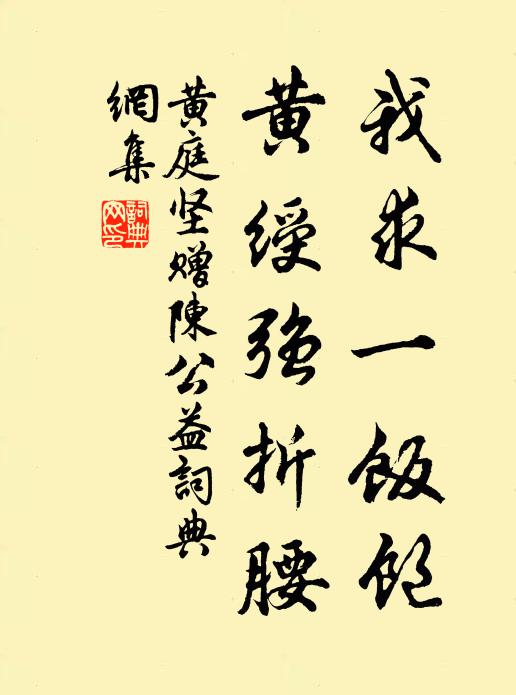 我求一飯飽
黄綬強折腰
黄庭坚贈陳公益詞典
網集
詞典
网印